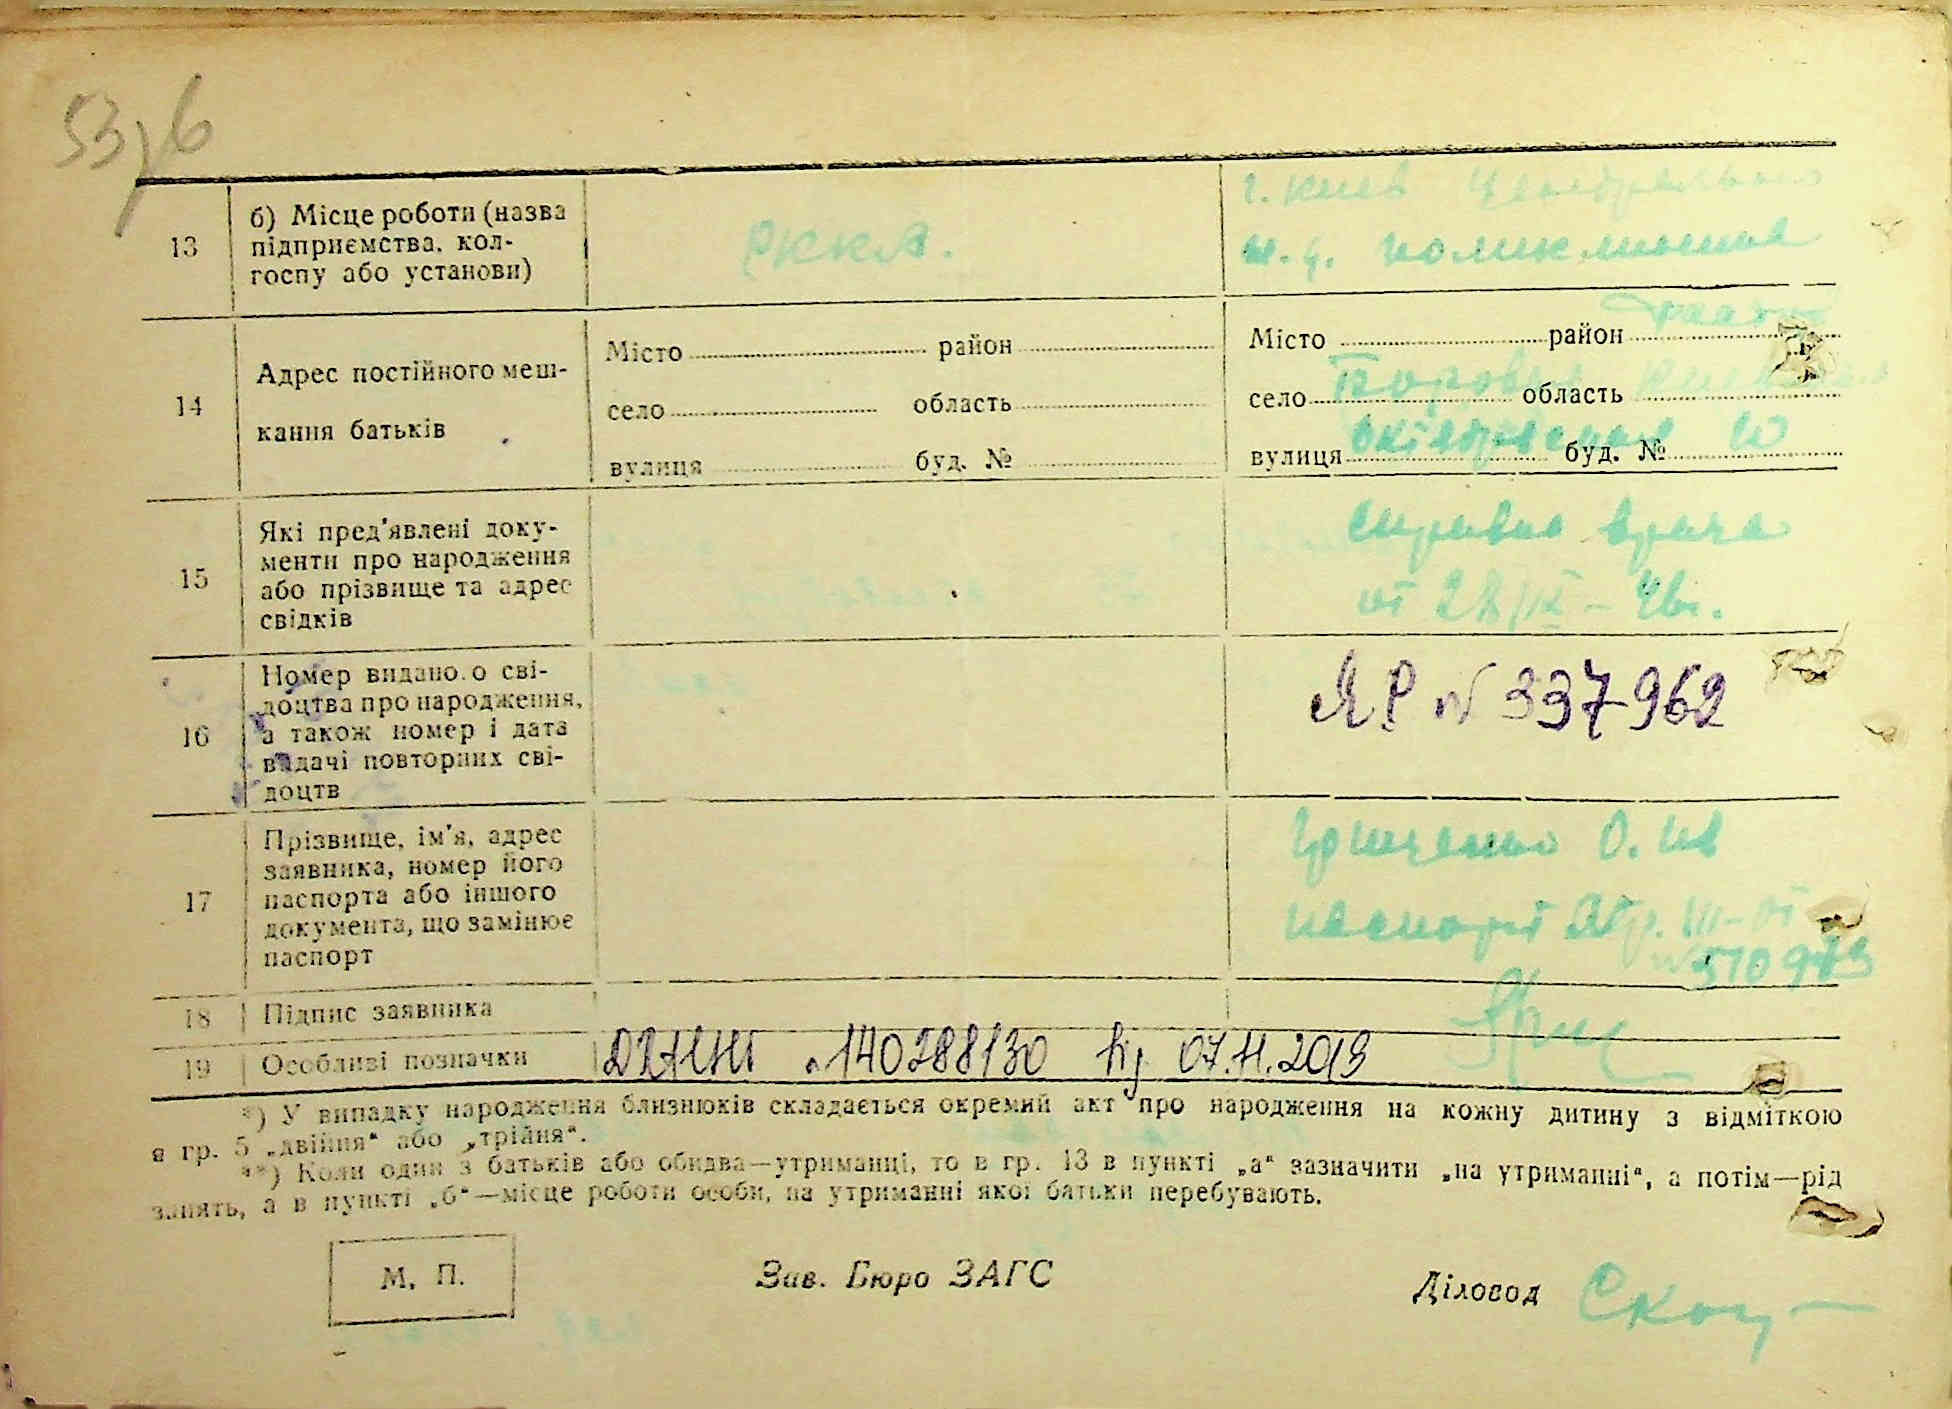 53
13
б) Місце роботи (назва
підприємства, кол-
госпу або установи)
РККА.
г. Киев Центральная
ж.д. поликлиника
14
Адрес постійного меш-
кання батьків
Місто район
село область
вулиця буд. №
Місто район
село область
вулиця буд. №
15
Які пред'явлені доку-
менти про народження
або прізвище та адрес
свідків
справка врача
от 28/IX-
16
Номер видано.о сві-
доцтва про народження,
а також номер і дата
видачі повторних сві-
доцтв
ЯР № 337962
17
Прізвище, ім'я, адрес
заявника, номер його
паспорта або іншого
документа, що замінює
паспорт
Грищенко О. Ив
паспорт
18
Підпис заявника
19
Особливі позначки
140288130 07.11.2019
*) У випадку народження близнюків складається окремий акт про народження на кожну дитину з відміткою
в гр. 5 „двійня“ або „трійня“.
**) Коли один з батьків або обидва—утриманці, то в гр. 13 в пункті „а“ зазначити „на утриманні“, а потім—рід
занять, а в пункті „б“—місце роботи особи, на утриманні якої батьки перебувають.
М. П.
Зав. Бюро ЗАГС
Діловод